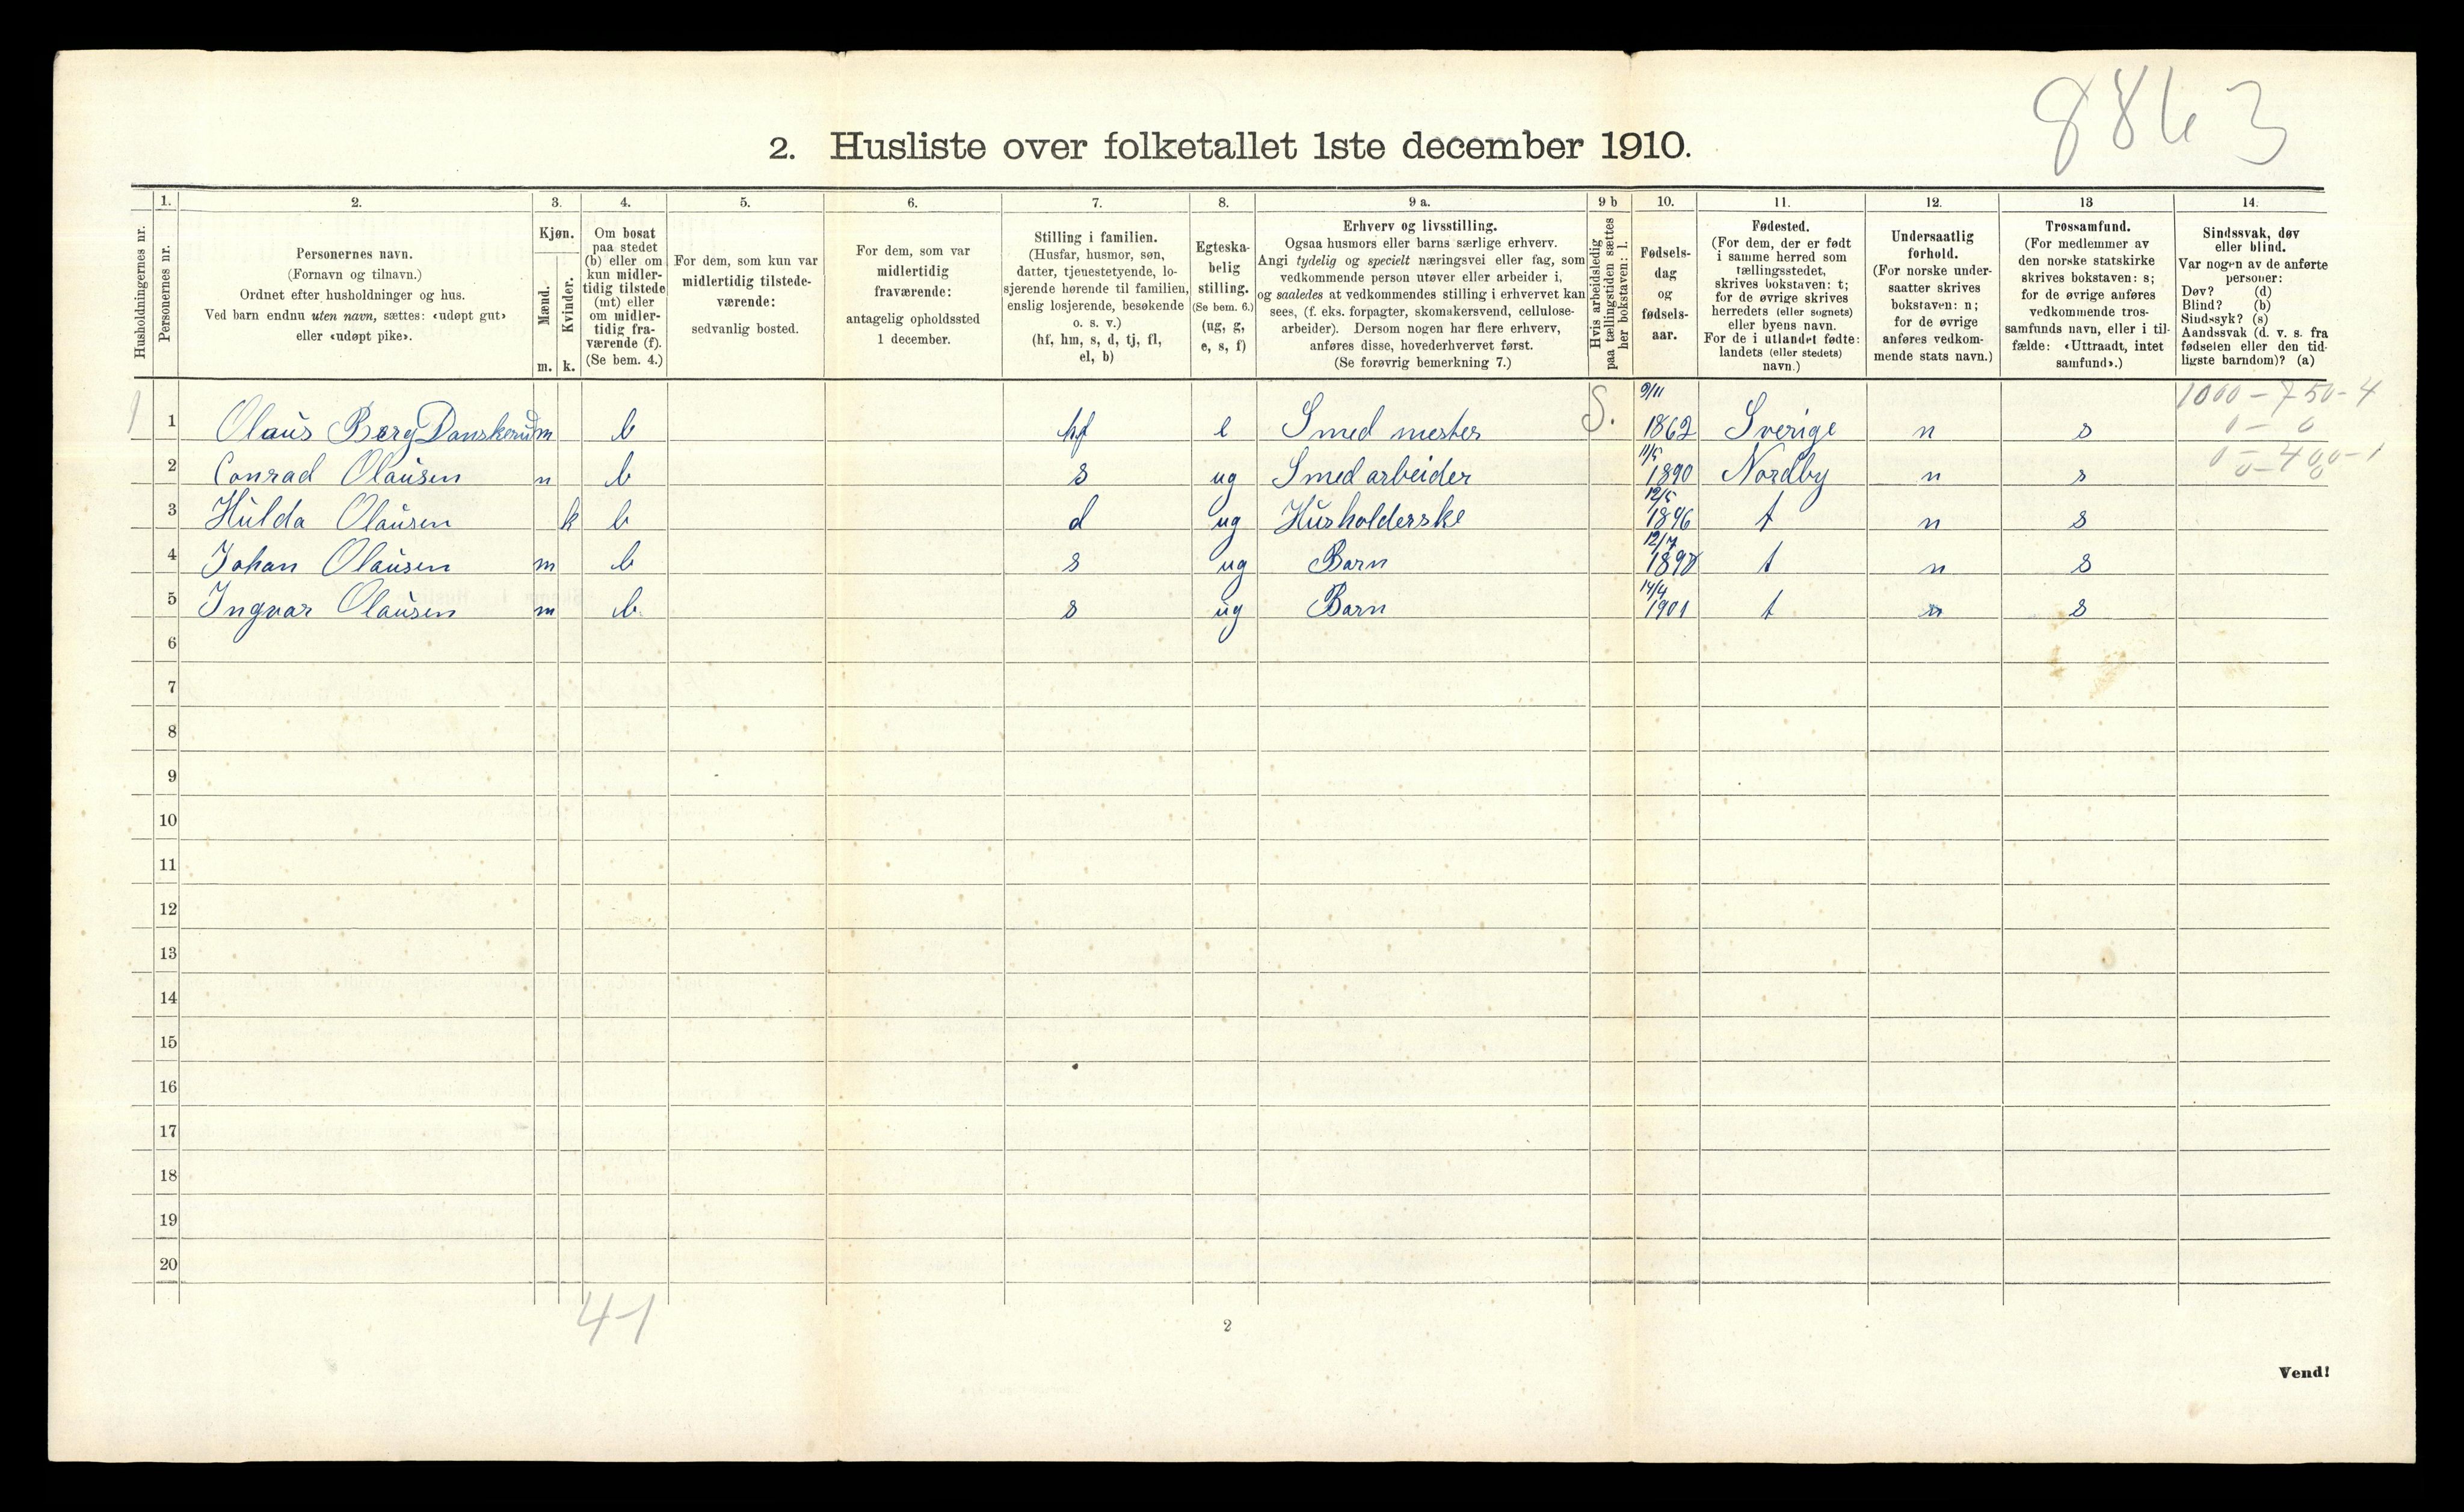 8863
2. Husliste over folketallet 1ste december 1910.
Husholdningernes nr.
1.
Personernes nr.
2.
Personernes navn.
(Fornavn og tilnavn.)
Ordnet efter husholdninger og hus.
Ved barn endnu uten navn, sættes: «udøpt gut»
eller «udøpt pike».
3.
Kjøn.
Mænd.
m.
Kvinder.
k.
4.
Om bosat
paa stedet
(b) eller om
kun midler-
tidig tilstede
(mt) eller
om midler-
tidig fra-
værende (f).
(Se bem. 4.)
5.
For dem, som kun var
midlertidig tilstede-
værende:
sedvanlig bosted.
6.
For dem, som var
midlertidig
fraværende:
antagelig opholdssted
1 december.
7.
Stilling i familien.
(Husfar, husmor, søn,
datter, tjenestetyende, lo-
sjerende hørende til familien,
enslig losjerende, besøkende
o. s. v.)
(hf, hm, s, d, tj, fl,
el, b)
8.
Egteska-
belig
stilling.
(Se bem. 6.)
(ug, g,
e, s, f)
9 a.
Erhverv og livsstilling.
Ogsaa husmors eller barns særlige erhverv.
Angi tydelig og specielt næringsvei eller fag, som
vedkommende person utøver eller arbeider i,
og saaledes at vedkommendes stilling i erhvervet kan
sees, (f. eks. forpagter, skomakersvend, cellulose-
arbeider). Dersom nogen har flere erhverv,
anføres disse, hovederhvervet først.
(Se forøvrig bemerkning 7.)
9 b
Hvis arbeidsledig
paa tællingstiden sættes
her bokstaven: l.
10.
Fødsels-
dag
og
fødsels-
aar.
11.
Fødested.
(For dem, der er født
i samme herred som
tællingsstedet,
skrives bokstaven: t;
for de øvrige skrives
herredets (eller sognets)
eller byens navn.
For de i utlandet fødte:
landets (eller stedets)
navn.)
12.
Undersaatlig
forhold.
(For norske under-
saatter skrives
bokstaven: n;
for de øvrige
anføres vedkom-
mende stats navn.)
13
Trossamfund.
(For medlemmer av
den norske statskirke
skrives bokstaven: s;
for de øvrige anføres
vedkommende tros-
samfunds navn, eller i til-
fælde: «Uttraadt, intet
samfund».)
14.
Sindssvak, døv
eller blind.
Var nogen av de anførte
personer:
Døv? (d)
Blind? (b)
Sindssyk? (s)
Aandssvak (d. v. s. fra
fødselen eller den tid-
ligste barndom)? (a)
1 1 Olaus Berg Danskerud m b hf e Smed mester S. 9/11 1862 Sverige n s 1000 - 750 - 4
0 - 0
2 Conrad Olausen m b s ug Smed arbeider 11/5 1890 Nordby n s 0 - 400 - 1
0 - 0
3 Hulda Olausen k b d ug Husholderske 12/5 1896 t n s
4 Johan Olausen m b s ug Barn 12/7 1898 t n s
5 Ingvar Olausen m b. s ug Barn 14/4 1901 t n s
6
7
8
9
10
11
12
13
14
15
16
17
18
19
20
4-1
2
Vend!